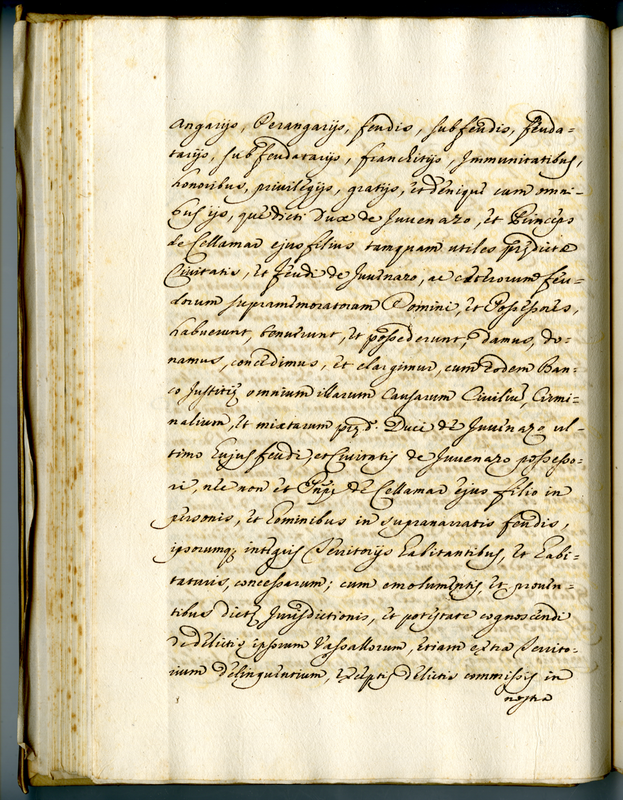 angarijs, Perangarijs, feudis, subfeudis, feuda=
tarijs, subfeudatarijs, franchitijs, Immunitatibus,
honoribus, privilegijs, gratijs, et denique cum omni=
bus ijs, que dicti Dux de Juvenazo, et Princeps
de Cellamar ejus filius tamquam utiles predictæ
Civitatis, et feudi de Juvenazo, ac cæterorum feu=
dorum supramemoratorum Domini, et Possessores,
habuerunt, tenuerunt, et possederunt, damus, do=
namus, concedimus, et elargimur, cum eodem Ban=
co Justitiæ omnium illarum Causarum Civiliũ, Crimi=
nalium, et mixtarum præd. Duci de Juvenazo ul=
timo hujus feudi, et Civitatis de Juvenazo possesso=
ri, nec non et Prīpi de Cellamar ejus filio in
personis, et hominibus in supranarratis feudis,
ipsorumq; integris Territorijs habitantibus, et habi=
taturis, concessarum; cum emolumentis, et proven=
tibus dictæ Jurisdictionis, et potestate cognoscendi
de delictis ipsorum Vassallorum, etiam extra Territo=
rium delinquentium, exceptis delictis commissis in
nostra